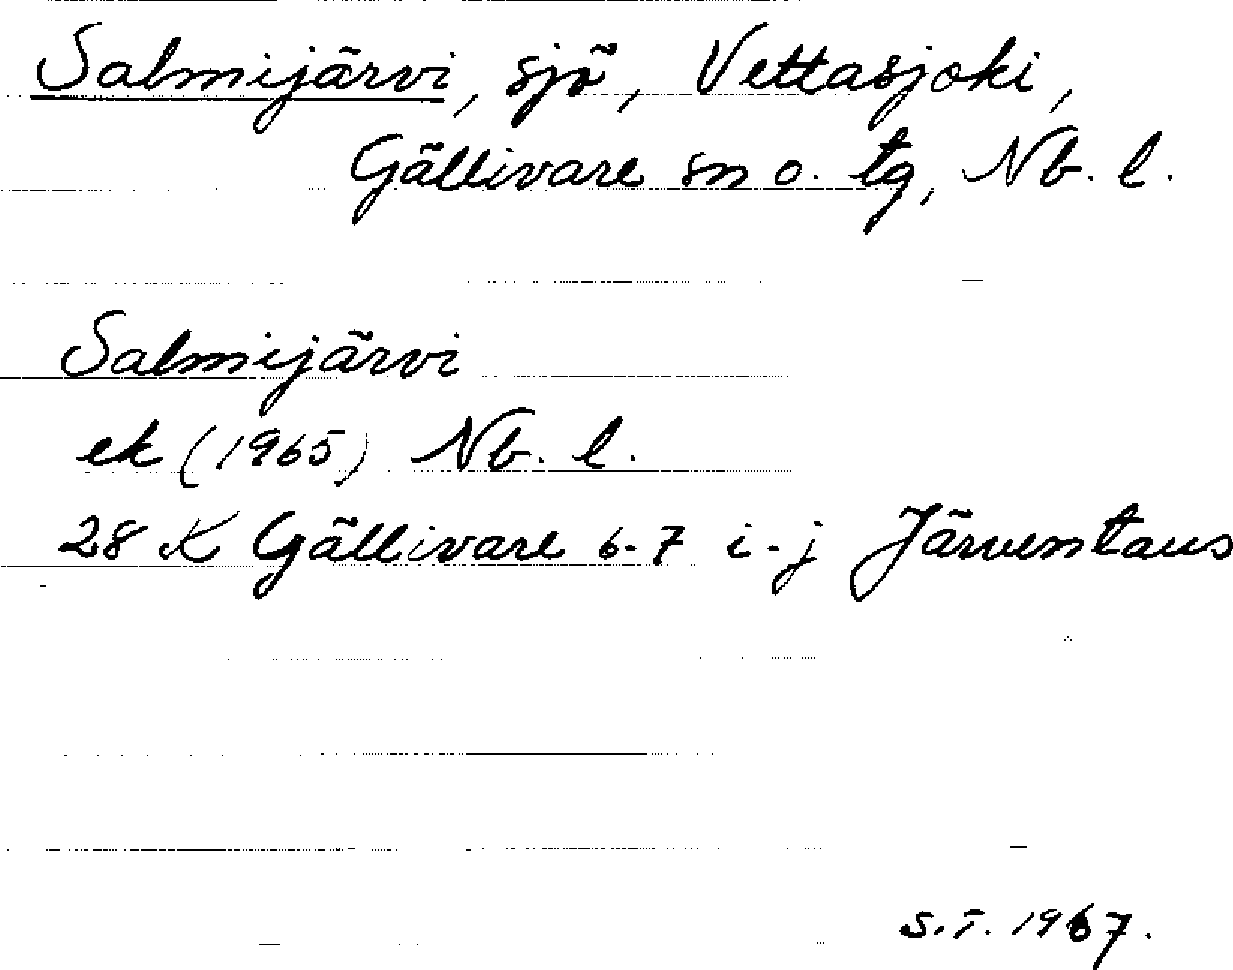 Salmijärvi, sjö, Vettasjoki,
Gällivare sn o. tg, Nb. l.
Salmijärvi
ek (1965) Nb. l.
28 K Gällivare 6-7 i-j Järventaus
S.T. 1967.